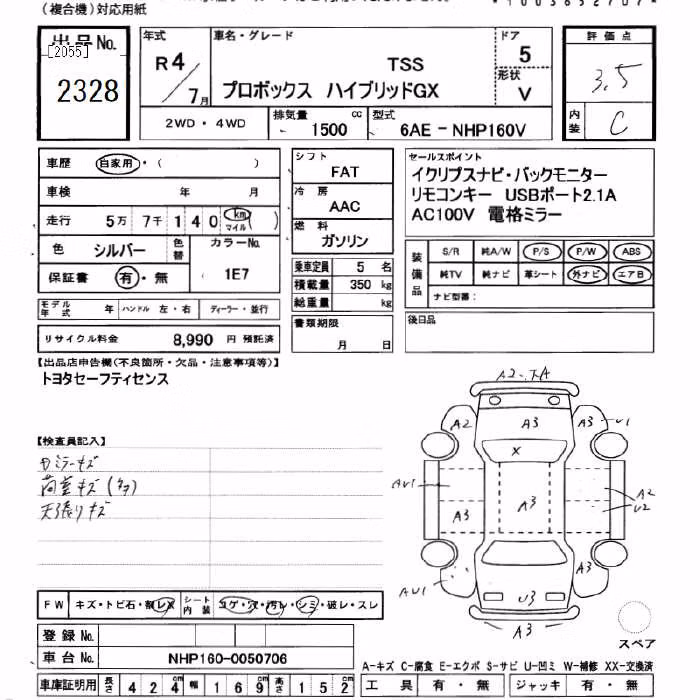 (複合機)対応用紙
出品No.
[2055]
2328
年式
R4/7月
車名・グレード
TSS
プロボックス ハイブリッドGX
ドア
5
形状
V
評価点
3.5
内装
C
2WD・4WD
排気量
1500 cc
型式
6AE-NHP160V
車歴 自家用・( )
車検 年 月
走行 5万 7千 1 4 0 km マイル
色 シルバー 色替
カラーNo.
1E7
保証書 有・無
モデル年式 年 ハンドル 左・右 ディーラー・並行
リサイクル料金 8,990 円 預託済
シフト
FAT
冷房
AAC
燃料
ガソリン
乗車定員 5 名
積載量 350 kg
総重量 kg
書類期限
月 日
セールスポイント
イクリプスナビ・バックモニター
リモコンキー USBポート2.1A
AC100V 電格ミラー
装備品
S/R 純A/W P/S P/W ABS
純TV 純ナビ 革シート 外ナビ エアB
ナビ型番:
後日品
【出品店申告欄(不良箇所・欠品・注意事項等)】
トヨタセーフティセンス
【検査員記入】
ミラーキズ
荷室キズ
天張りキズ
A2
A3
A3
U1
X
AU1
A3
A3
A2
U2
AU1
U3
A3
A3
スペア
FW キズ・トビ石・割レ・X
シート内装 コゲ・穴・汚レ・シミ・破レ・スレ
登録No.
車台No. NHP160-0050706
車庫証明用 長さ 4 2 4 cm 幅 1 6 9 cm 高さ 1 5 2 cm
A-キズ C-腐食 E-エクボ S-サビ U-凹ミ W-補修 XX-交換済
工具 有・無 ジャッキ 有・無